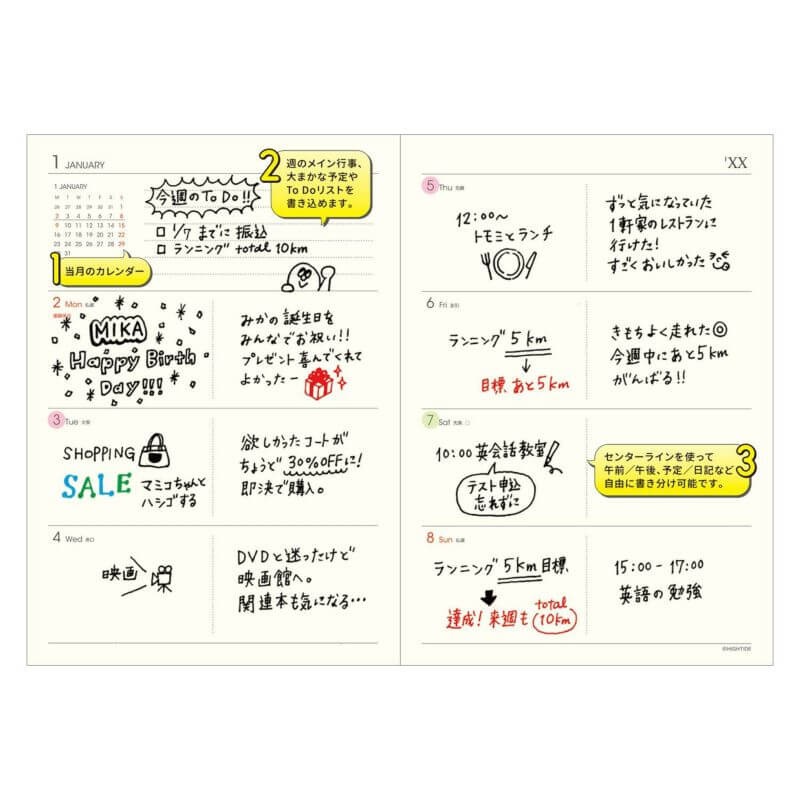 1 JANUARY
1 JANUARY
M T W T F S S
1
2 3 4 5 6 7 8
9 10 11 12 13 14 15
16 17 18 19 20 21 22
23 24 25 26 27 28 29
30 31
1 当月のカレンダー
今週のTo Do!!
□ 1/7 までに 振込
□ ランニング total 10km
2 週のメイン行事、
大まかな予定や
To Doリストを
書き込めます。
2 Mon 仏滅
MIKA
Happy Birth
Day!!!
みかの誕生日を
みんなでお祝い!!
プレゼント喜んでくれて
よかったー
3 Tue 大安
SHOPPING
SALE マミコちゃんと
ハシゴする
欲しかったコートが
ちょうど30%OFFに!
即決で購入。
4 Wed 赤口
映画
DVDと迷ったけど
映画館へ。
関連本も気になる…
'XX
5 Thu 先勝
12:00〜
トモミとランチ
ずっと気になっていた
1軒家のレストランに
行けた!
すごくおいしかった
6 Fri 友引
ランニング 5km
目標 あと5km
きもちよく走れた◎
今週中にあと5km
がんばる!!
7 Sat 先負
10:00 英会話教室
テスト申込
忘れずに
センターラインを使って
午前/午後、予定/日記など
自由に書き分け可能です。
3
8 Sun 仏滅
ランニング 5km 目標
達成! 来週も total
10km
15:00 - 17:00
英語の勉強
©HIGHTIDE